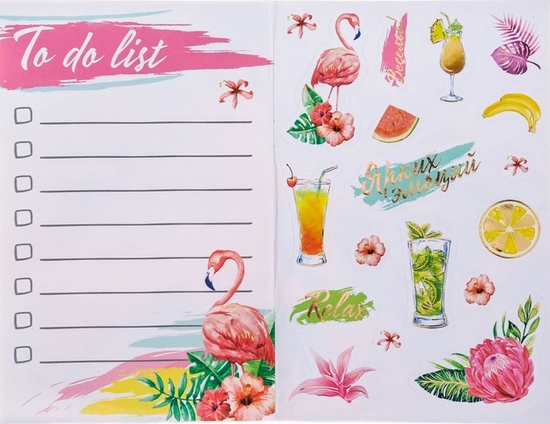 To do list
Веселье
Ярких
эмоций
Relax